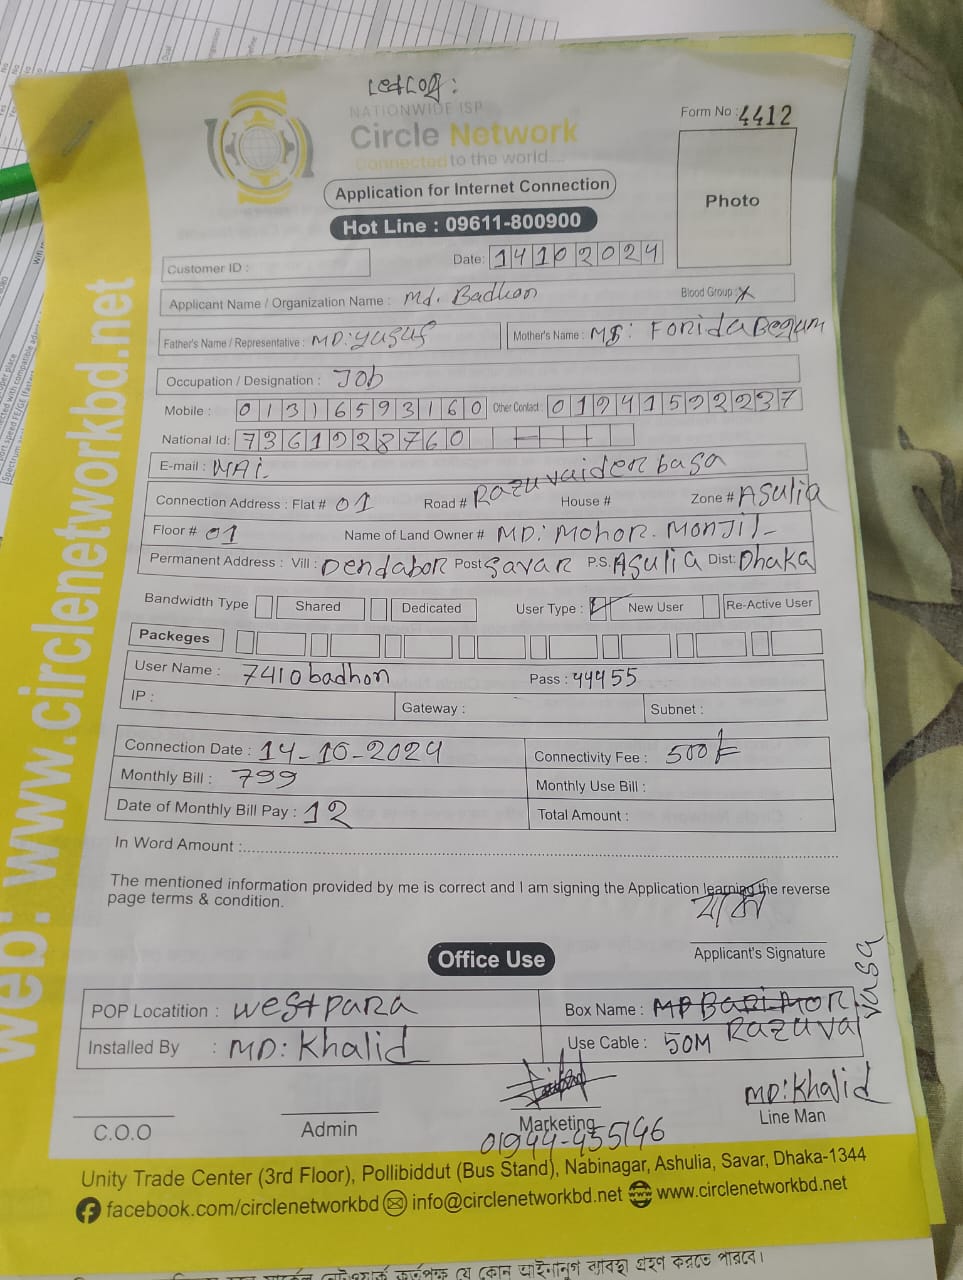 NATIONWIDE ISP
Circle Network
Connected to the world....
Form No : 4412
Photo
Application for Internet Connection
Hot Line : 09611-800900
Customer ID :
Date: 14102024
Applicant Name / Organization Name : Md. Badhon
Blood Group :
Father's Name / Representative : MD: yusuf
Mother's Name : Forida Begum
Occupation / Designation : Job
Mobile : 01316593160 Other Contact : 01941522237
National Id: 7361928760
E-mail :
Connection Address : Flat # 01 Road # Razuvaider basa House # Zone # Asulia
Floor # 01 Name of Land Owner # MD: Mohor. Monjil
Permanent Address : Vill : Dendabor Post Savar P.S. Asulia Dist: Dhaka
Bandwidth Type Shared Dedicated User Type : New User Re-Active User
Packeges
User Name : 7410badhon Pass : 44455
IP : Gateway : Subnet :
Connection Date : 14-10-2024 Connectivity Fee : 500/-
Monthly Bill : 799 Monthly Use Bill :
Date of Monthly Bill Pay : 12 Total Amount :
In Word Amount :
The mentioned information provided by me is correct and I am signing the Application learning the reverse
page terms & condition.
Applicant's Signature
Office Use
POP Locatition : westpara Box Name : MP Bari Mor
Razuvai vasa
Installed By : MD: Khalid Use Cable : 50M
MD: Khalid
C.O.O Admin Marketing Line Man
01944-455146
Unity Trade Center (3rd Floor), Pollibiddut (Bus Stand), Nabinagar, Ashulia, Savar, Dhaka-1344
facebook.com/circlenetworkbd info@circlenetworkbd.net www.circlenetworkbd.net
web: www.circlenetworkbd.net
কর্তৃপক্ষ যে কোন আইনানুগ ব্যবস্থা গ্রহণ করতে পারবে।